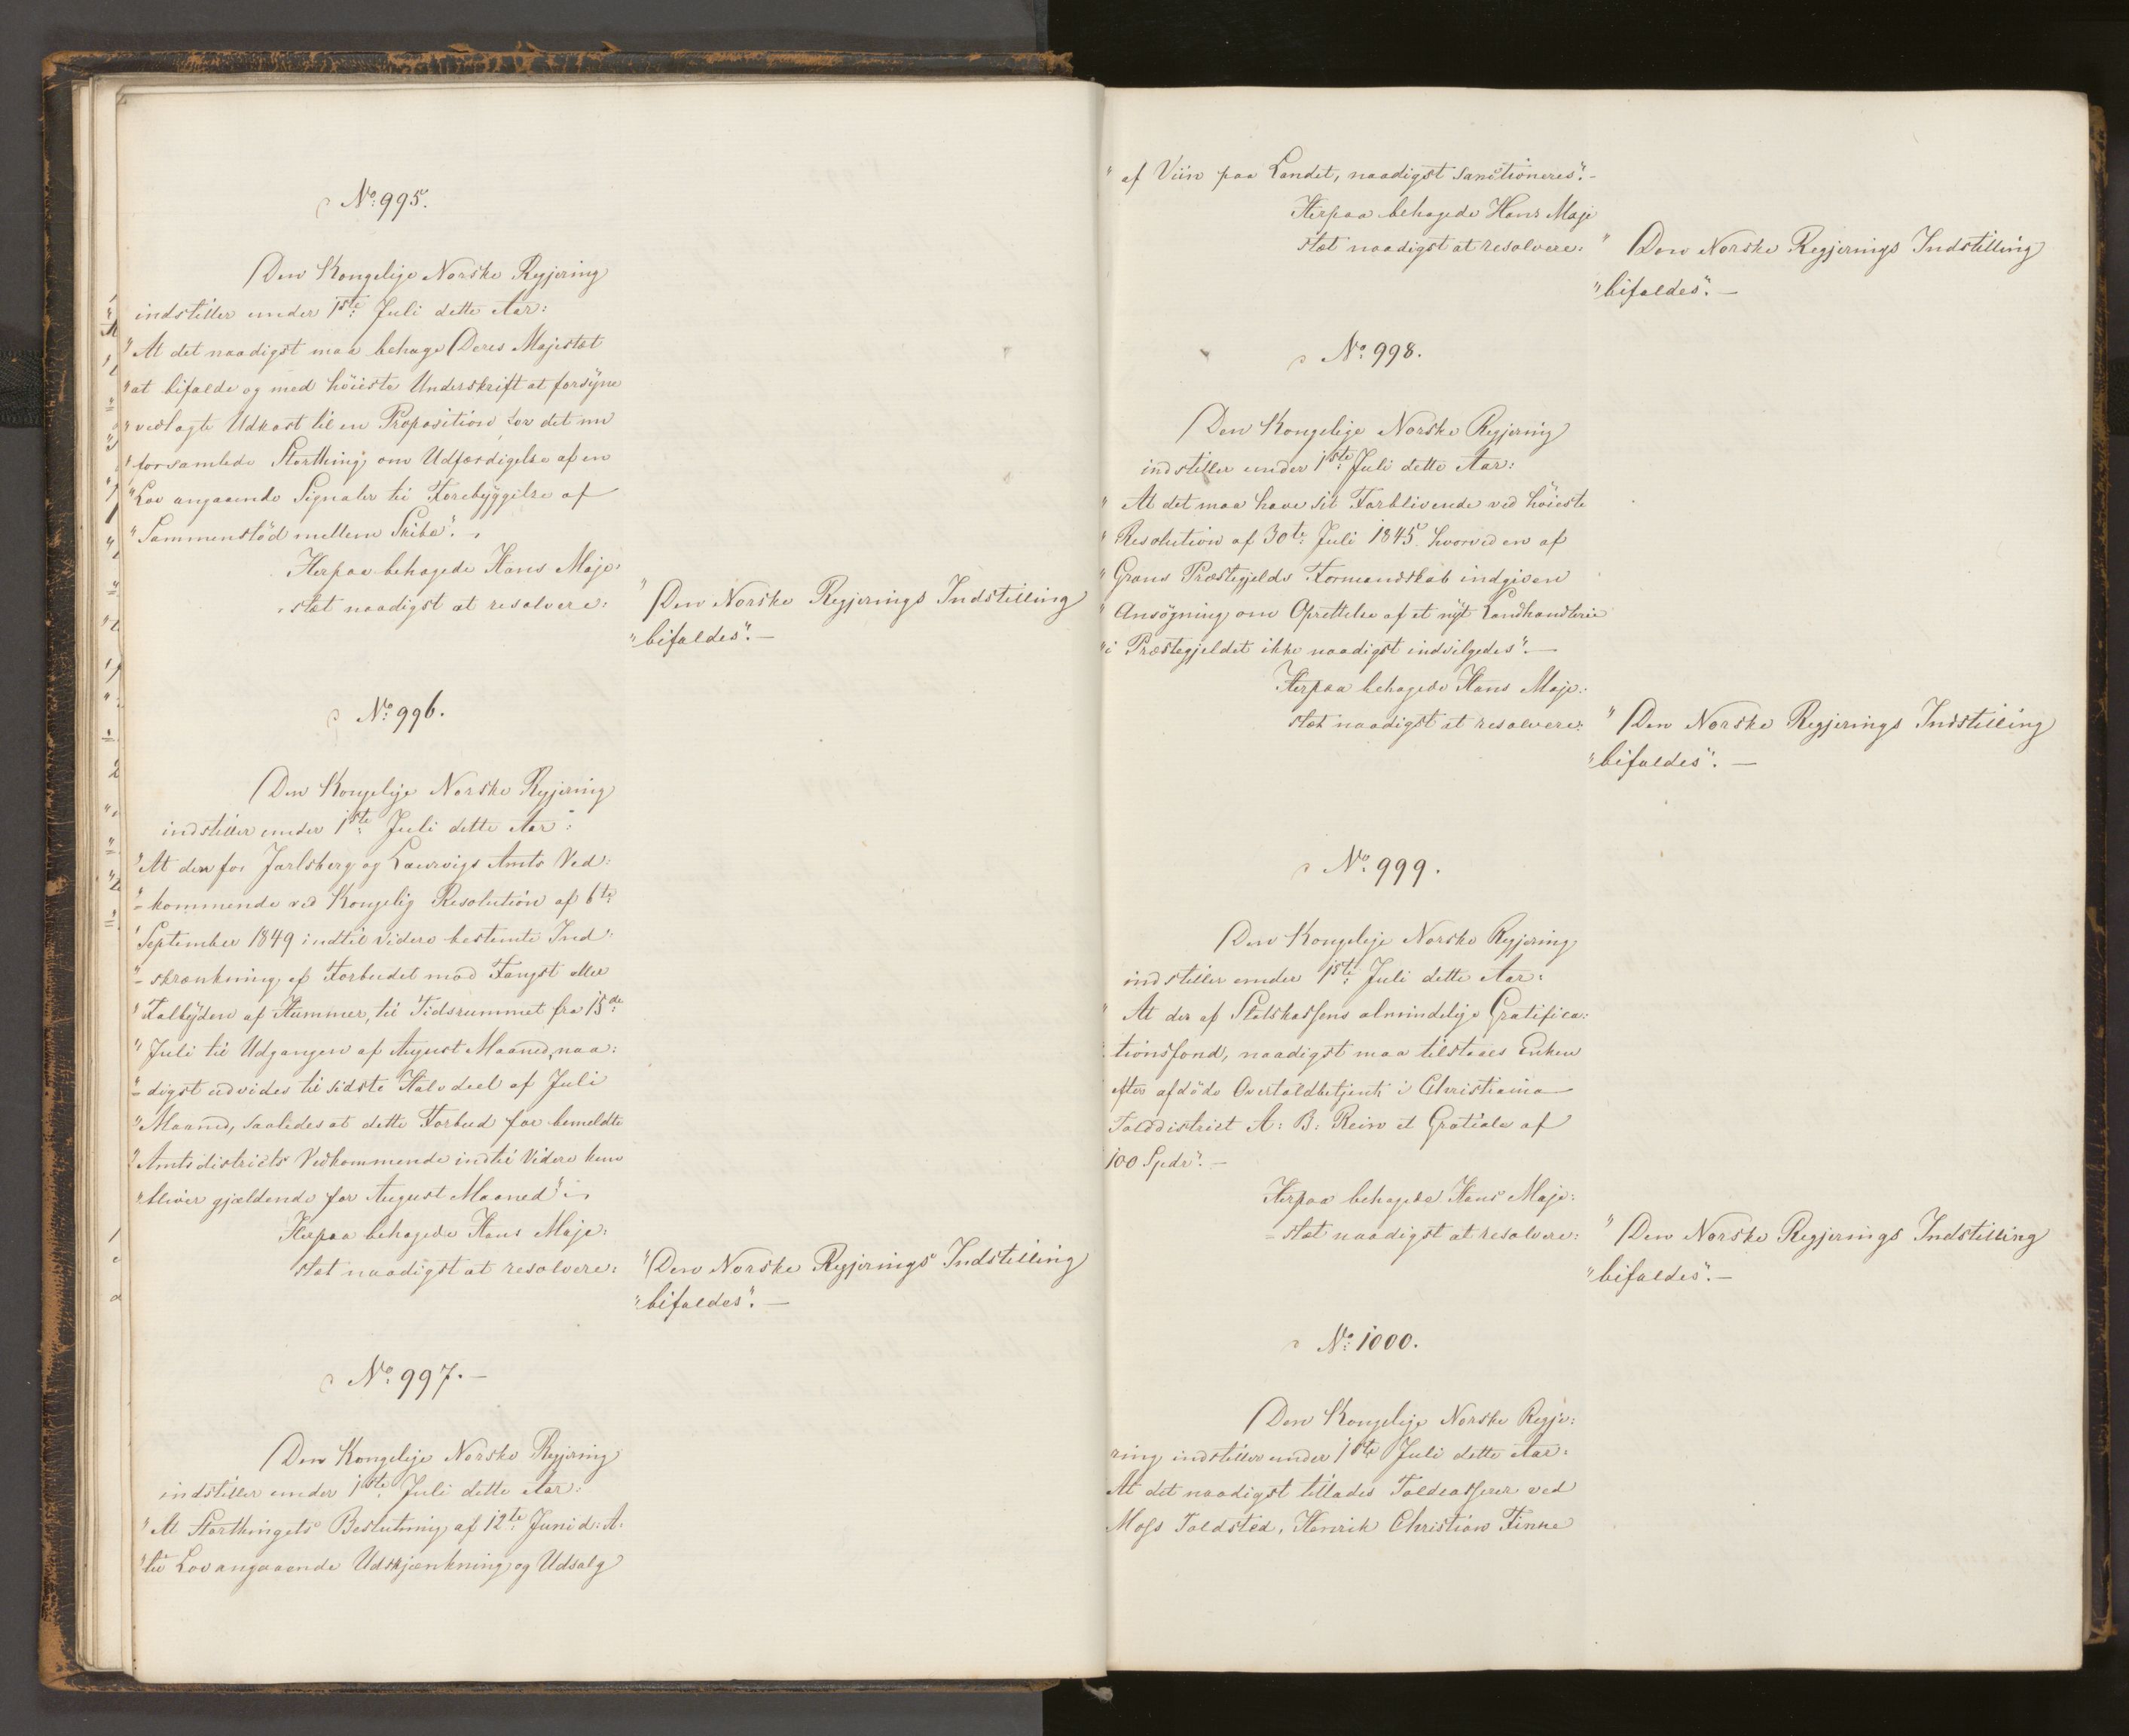 No. 995.
Den Kongelige Norske Regjering
indstiller under 1ste Juli dette Aar:
"At det naadigst maa behage Deres Majestæt
"at bifalde og med höieste Underskrift at forsÿne
"vedlagte Udkast til en Proposition for det nu
"forsamlede Storthing om Udfærdigelse af en
"Lov angaaende Signaler til Forebÿggelse af
"Sammenstöd mellem Skibe".
Herpaa behagede Hans Maje-
stæt naadigst at resolvere:
"Den Norske Regjerings Indstilling
"bifaldes". —
No. 996.
Den Kongelige Norske Regjering
indstiller under 1ste Juli dette Aar:
"At den for Jarlsberg og Laurvigs Amts Ved:
"=kommende ved Kongelig Resolution af 6te
"September 1849 indtil videre bestemte Ind:
"=skrænkning af Forbudet mod Fangst eller
"Falbÿden af Hummer, til Tidsrummet fra 15de
"Juli til Udgangen af August Maaned, naa:
"=digst udvides til sidste Halvdeel af Juli
"Maaned, saaledes at dette Forbud for bemeldte
"Amtsdistricts Vedkommende indtil Videre kun
"bliver gjældende for August Maaned".
Herpaa behagede Hans Maje:
stæt naadigst at resolvere:
"Den Norske Regjerings Indstilling
"bifaldes". —
No. 997. —
Den Kongelige Norske Regjering
indstiller under 1ste Juli dette Aar:
"At Storthingets Beslutning af 12te Juni d: A.
"til Lov angaaende Udskjænkning og Udsalg
"af Viin paa Landet, naadigst sanctioneres". -
Herpaa behagede Hans Maje
stæt naadigst at resolvere:
"Den Norske Regjerings Indstilling
"bifaldes". —
No. 998.
Den Kongelige Norske Regjering
indstiller under 1ste Juli dette Aar:
"At det maa have sit Forblivende ved höieste
"Resolution af 30te Juli 1845 hvorved en af
"Grans Præstegjelds Formandskab indgiven
"Ansögning om Oprettelse af et nÿt Landhandlerie
"i Præstegjeldet ikke naadigst indvilgedes". —
Herpaa behagede Hans Maje:
stæt naadigst at resolvere:
"Den Norske Regjerings Indstilling
"bifaldes". —
No. 999.
Den Kongelige Norske Regjering
indstiller under 1ste Juli dette Aar:
"At der af Statskassens almindelige Gratifica:
tionsfond, naadigst maa tilstaaes Enken
efter afdöde Overtoldbetjent i Christiania
Tolddistrict A: B: Rein et Gratiale af
100 Spdr". —
Herpaa behagede Hans Maje:
=stæt naadigst at resolvere:
"Den Norske Regjerings Indstilling
"bifaldes". —
No. 1000.
Den Kongelige Norske Regje:
ring indstiller under 1ste Juli dette Aar:
At det naadigst tillades Toldcasserer ved
Moss Toldsted, Henrik Christian Finne